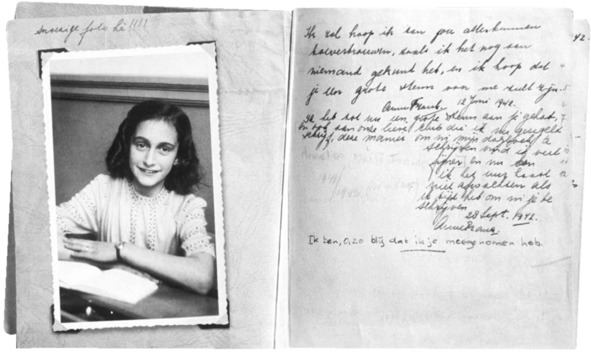 snoezige foto hè!!!!
Ik zal hoop ik aan jou alles kunnen
toevertrouwen, zoals ik het nog aan
niemand gekund heb, en ik hoop dat
je een grote steun voor me zult zijn.
Anne Frank. 12 Juni 1942.
Ik heb tot nu een grote steun aan je gehad,
en ook aan onze lieve club die ik nu geregeld
schrijf, deze manier om in mijn dagboek te
schrijven vind ik veel
fijner en nu kan
ik het uur haast
niet afwachten als
ik tijd heb om in je te
schrijven
28 Sept. 1942.
Anne Frank
Ik ben, o, zo blij dat ik je meegenomen heb.
42.